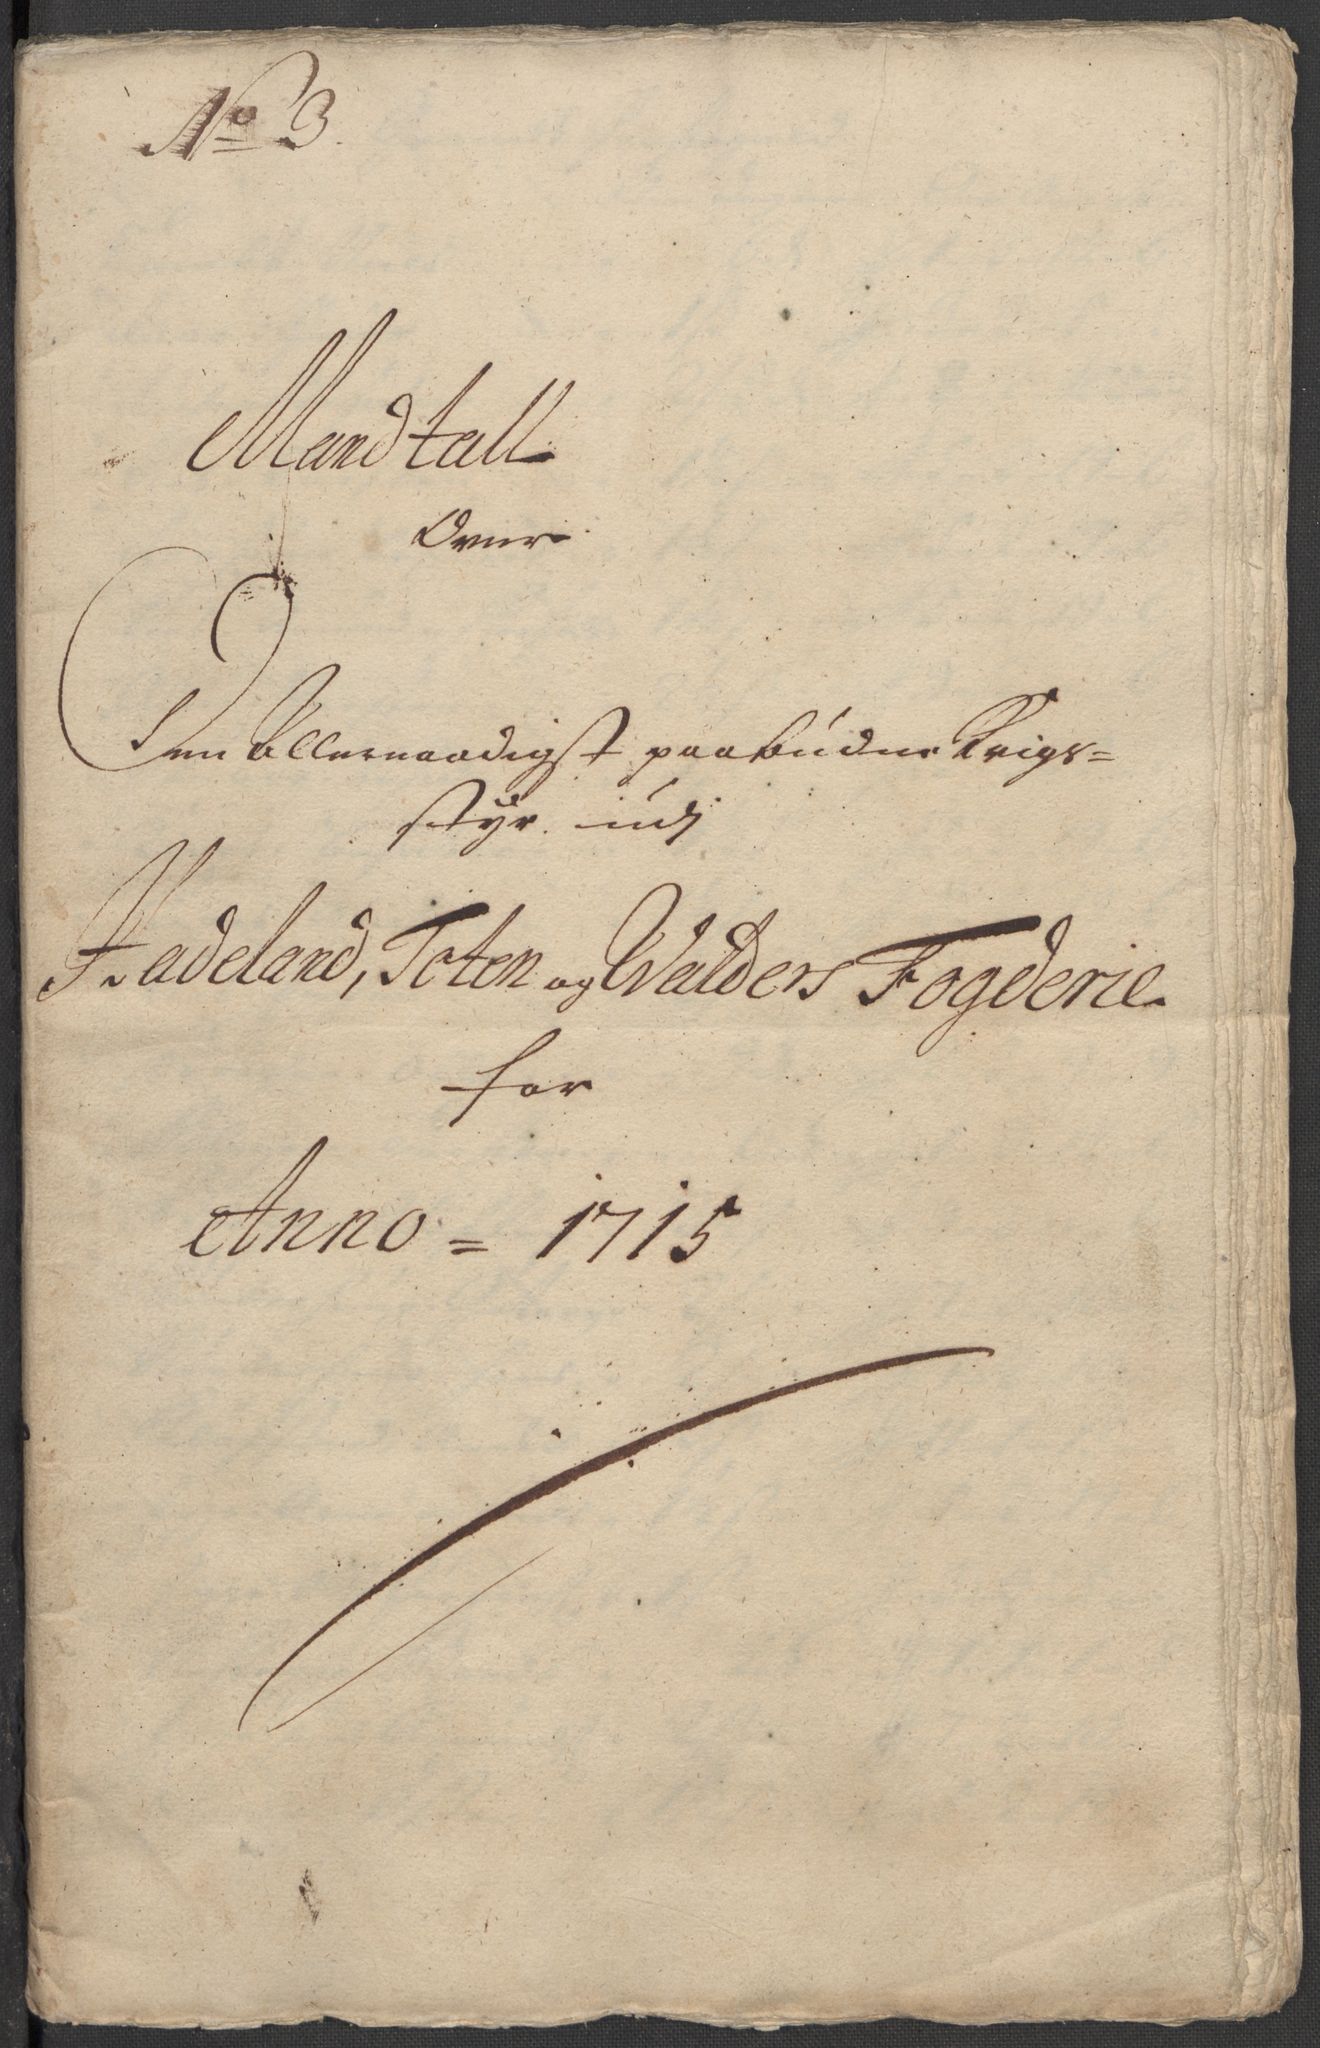 No 3.
Mandtall
Over
Den Allernaadigst paabudne Krigs=
styr. udj
Hadeland, Toten og Walders Fogderie
for
Anno = 1715